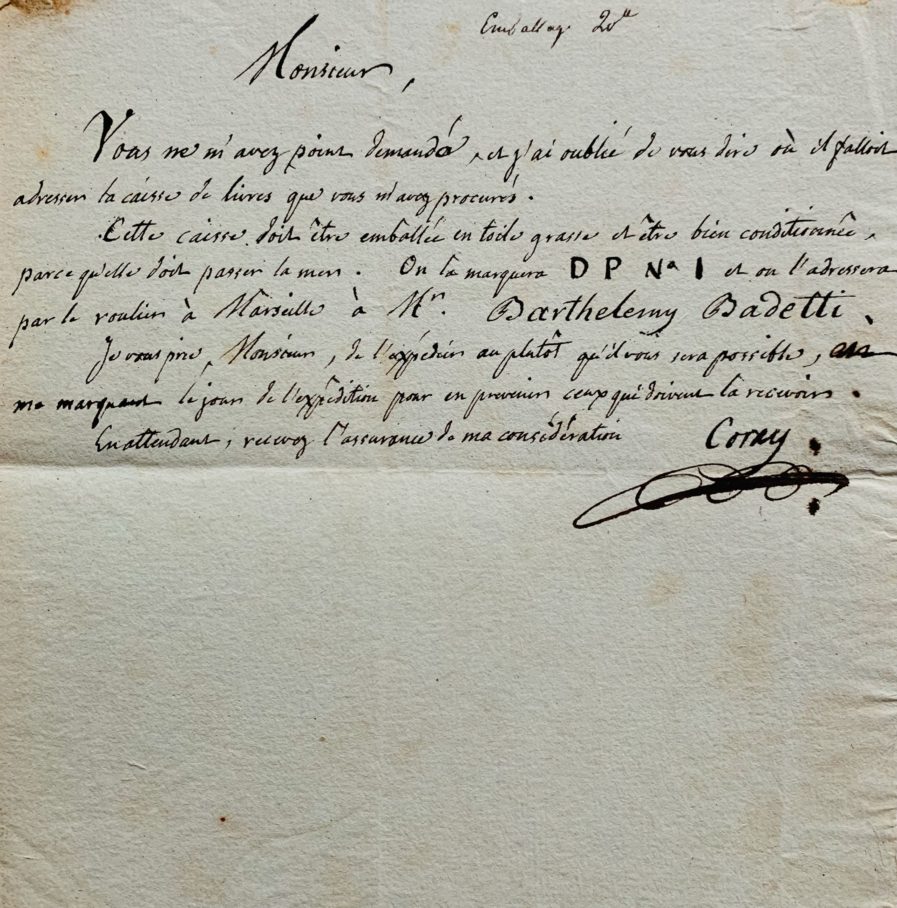 Emballage 20<sup>tt</sup>
Monsieur,
Vous ne m'avez point demandé, et j'ai oublié de vous dire où il falloit
adresser la caisse de livres que vous m'avez procurés.
Cette caisse doit être emballée en toile grasse et être bien conditionnée,
parce qu'elle doit passer la mer. On la marquera DP N° 1 et on l'adressera
par le roulier à Marseille à Mr. Barthelemy Badetti.
Je vous prie, Monsieur, de l'expédier au plutôt qu'il vous sera possible, en
me marquant le jour de l'expédition pour en prevenir ceux qui doivent la recevoir.
En attendant, recevez l'assurance de ma considération Coray.